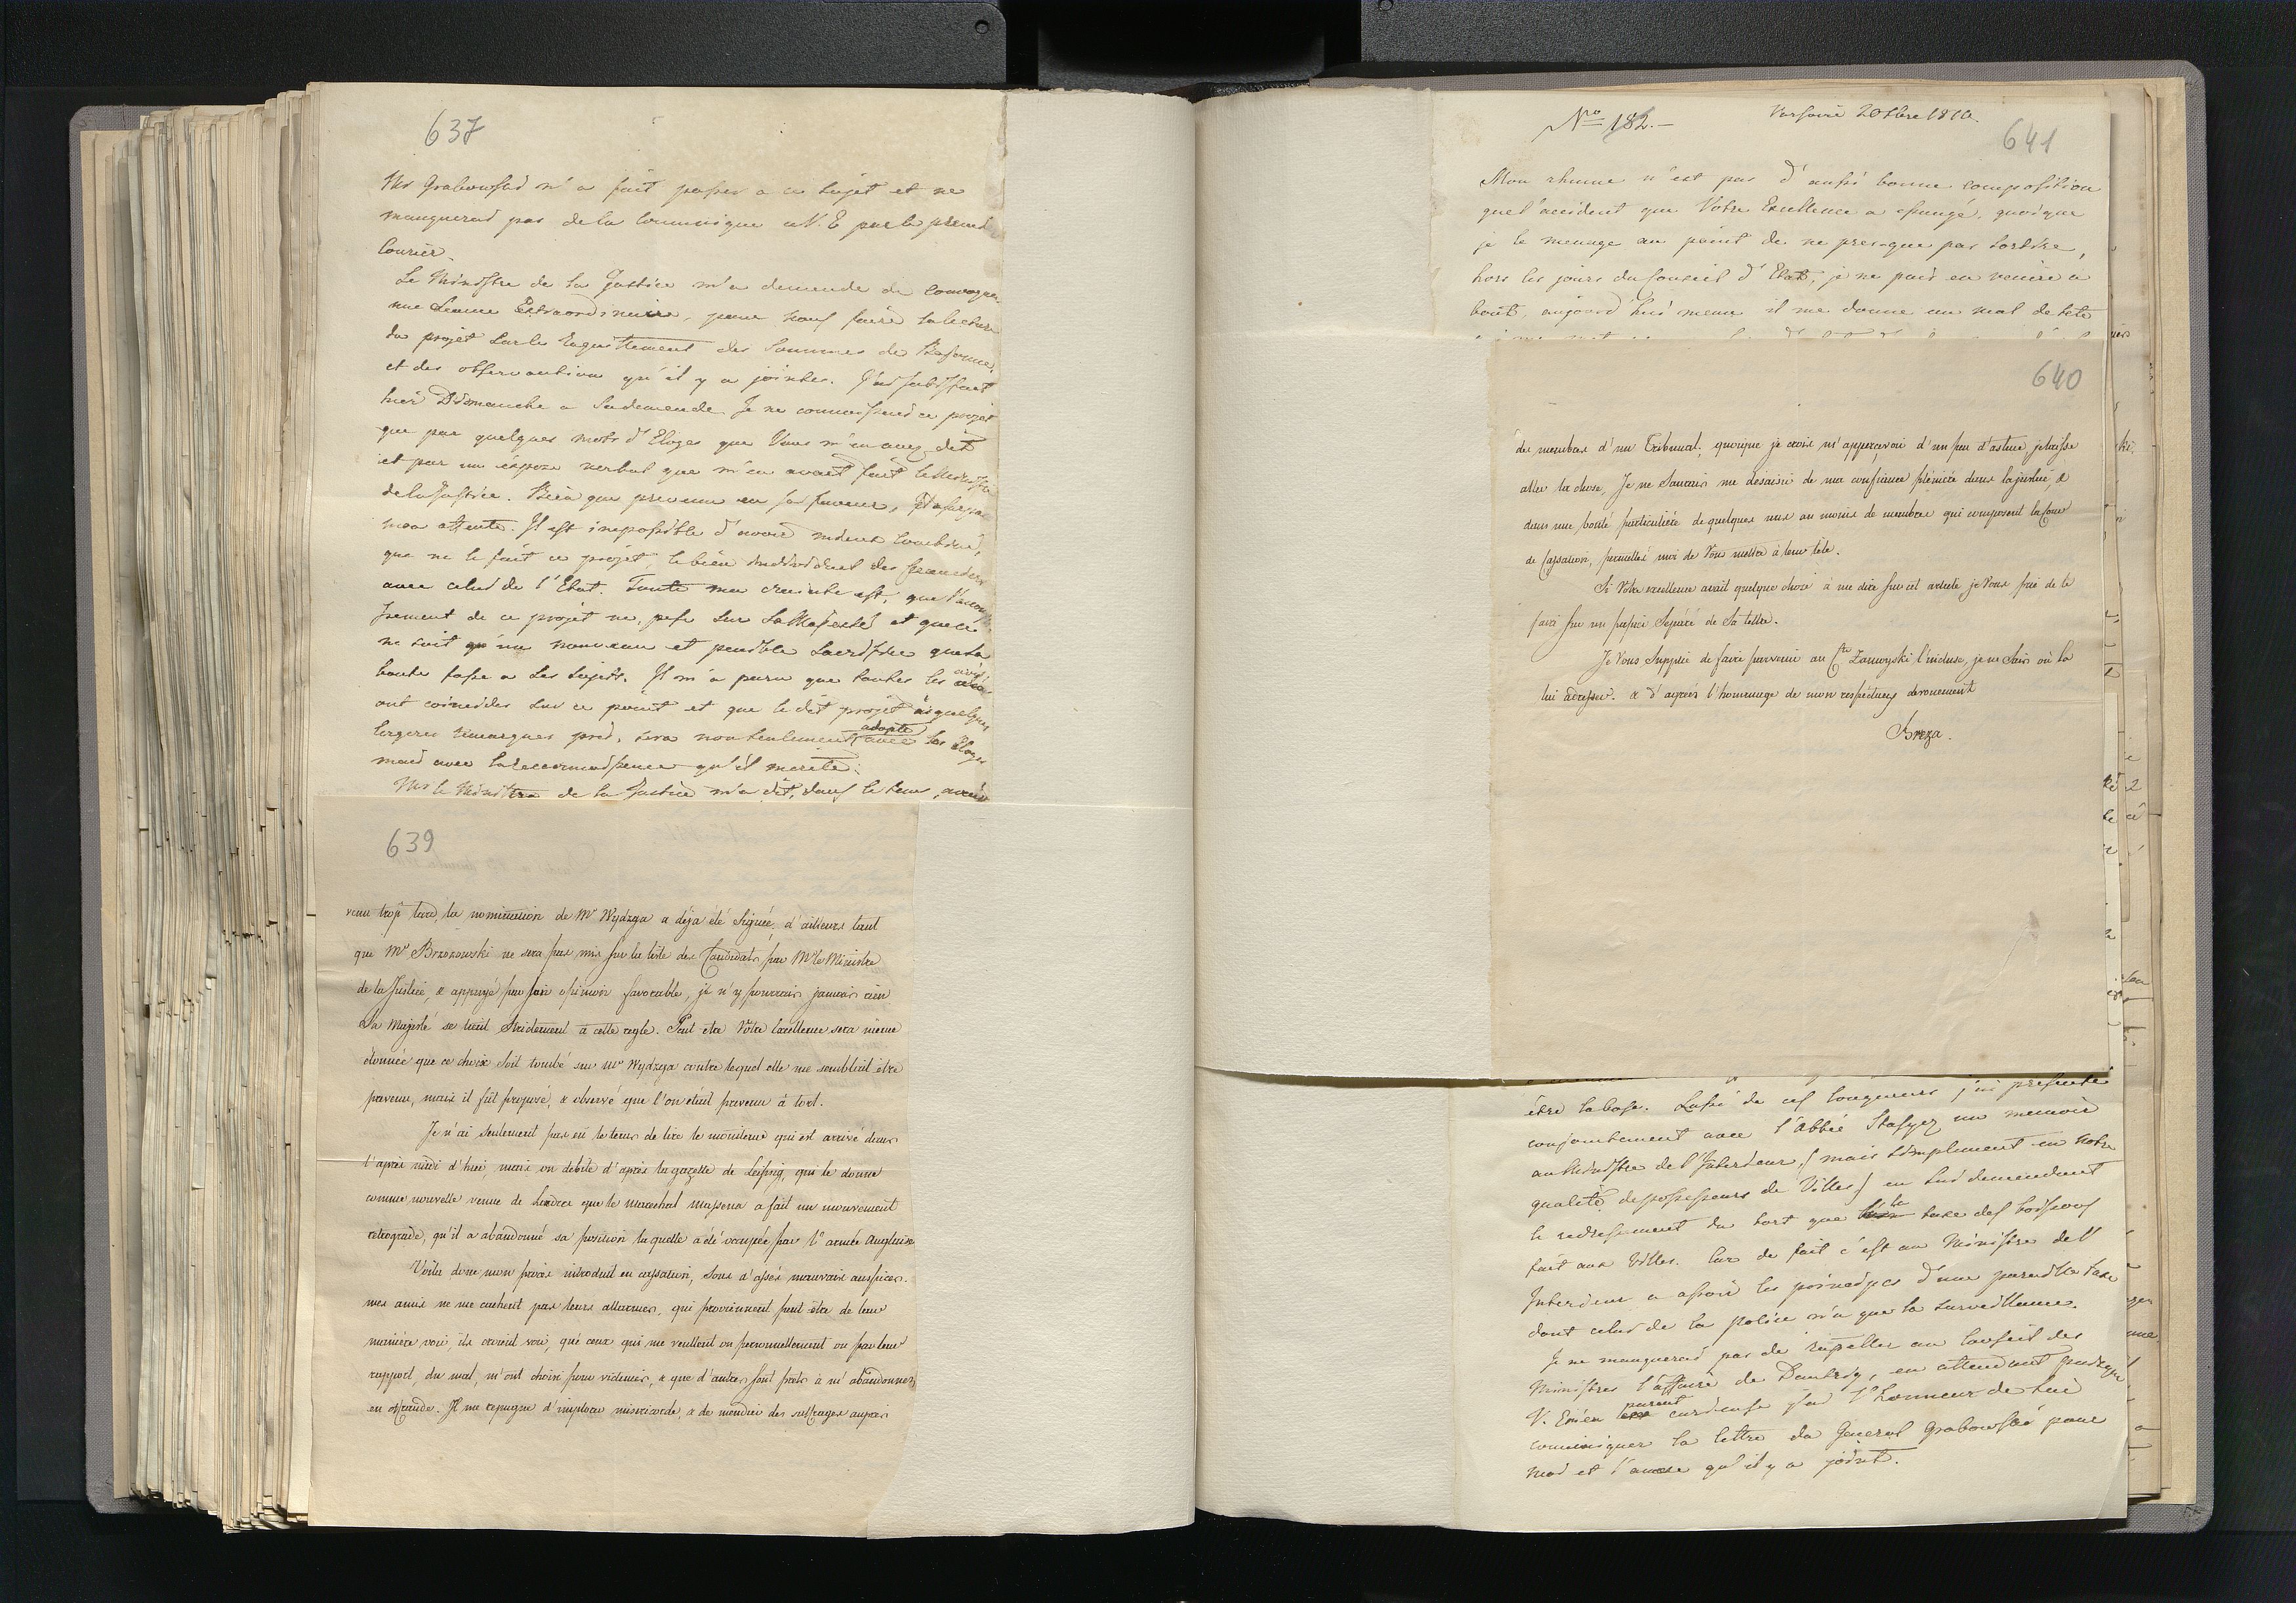 637
Mr Grabowski m'a fait passer a ce sujet et ne
manquerai pas de la comunique a V. E par le premier
Courier.
Le Ministre de la Justice m'a demende de Convoquer
une Seance Extraordinaire, pour nous faire la lecture
du projet sur le Enquittement des Sommes de Bajonne,
et des observation qu'il y a jointes. J'ai satisfait
hier Dimanche a sa demende. Je ne connoissais ce projet
que par quelques mots d'Eloges que Vous m'en avez dit
et par un expose verbal que m'en avait fait le Ministre
de la Justice. Bien que prevenu en sa faveur, il a surpasse
mon attente. Il est impossible d'avoir mieux combiné,
que ne le fait ce projet, le bien individuel des
avec celui de l'Etat. Toute ma crainte est, que l'accomplis
sement de ce projet ne pese sur Sa Majesté et que ce
ne soit qu'un nouveau et penible Sacrifice que sa
bonté fasse a ses sujets. Il m'a paru que toutes les avis
ont coincidés sur ce point et que le dit projet a quelques
legeres remarques pres, sera non seulement adopté avec les Eloges
mais avec la reconnaissance qu'il merite.
Mr le Ministre de la Justice m'a dit, dans le tems, avoir
639
venu trop tard, la nomination de Mr Wydzga a déja été signée, d'ailleurs tant
que Mr Brzozowski ne sera pas mis sur la liste des Candidats par Mr le Ministre
de la Justice, & appuyé par son opinion favorable, je n'y pourrais jamais rien
Sa Majesté se tient strictement à cette regle. Peut etre Votre Excellence sera même
étonnée que ce choix soit tombé sur Mr Wydzga contre lequel elle me semblait être
prevenu, mais il fût proposé, & observé que l'on était prevenu à tort.
Je n'ai seulement pas eû le tems de lire le moniteur qui est arrivé dans
l'après midi d'hui, mais on debite d'après la gazette de Leipsig, qui le donne
comme nouvelle venue de Londres que le marechal Massena a fait un mouvement
retrograde, qu'il a abandonné sa position laquelle a été occupée par l'armée Anglaise
Voila donc mon procès introduit en cassation, sous d'assés mauvais auspices.
mes amis ne me cachent pas leurs allarmes, qui proviennent peut être de leur
manière voir, ils croient voir, que ceux qui me veuillent ou personnellement ou par leur
rapport, du mal, m'ont choisi pour victimes, & que d'autres sont prets à m'abandonner
en offrande. Il me repugne d'implorer misericorde, & de mendier des suffrages auprès
No 182.-
Varsovie 20 Xbre 1810.
641
Mon rhume n'est pas d'aussi bonne composition
que l'accident que Votre Excellence a epruvgé, quoique
je le menage au point de ne presque pas sortire,
hors les jours du Conseil d'Etat, je ne puis en venire a
bout, aujourd'hui meme il me donne un mal de tete
640
des membres d'un Tribunal, quoique je crois m'appercevoir d'un peu d'astuce je laisse
aller la chose, Je ne saurais me desaisir de ma confiance plénière dans la justice &
dans une bonté particulière de quelques uns au moins de membres qui composent la Cour
de Cassation, permettés moi de Vous mettre à leur tête.
Si Votre excellence avait quelque chose à me dire sur cet article je Vous prie de le
faire sur un papier séparé de Sa lettre.
Je Vous supplie de faire parvenir au Cte Zamoyski l'incluse, je ne sais où la
lui adresser. & d'agréér l'hommage de mon respectueux devouement
Breza.
être la base. Lassé de ces longueurs j'ai presenté
conjointement avec l'Abbé Staszyc un memoire
au Ministre de l'Interieur, (mais simplement en notre
qualité de possesseurs de Villes) en lui demendent
le redressement du tort que la taxe des boissons
fait aux Villes. Car de fait c'est au Ministre de l'
Interieur a assoir les principes d'une pareille taxe
dont celui de la police n'a que la surveillance.
Je ne manquerai pas de rapeller au Conseil des
Ministres l'affaire de Dembsky, en attendant puisque
V. E m'en parait curieuse j'ai l'honneur de lui
comuniquer la lettre du General Grabowski pour
moi et l'anexe qu'il y a joint.